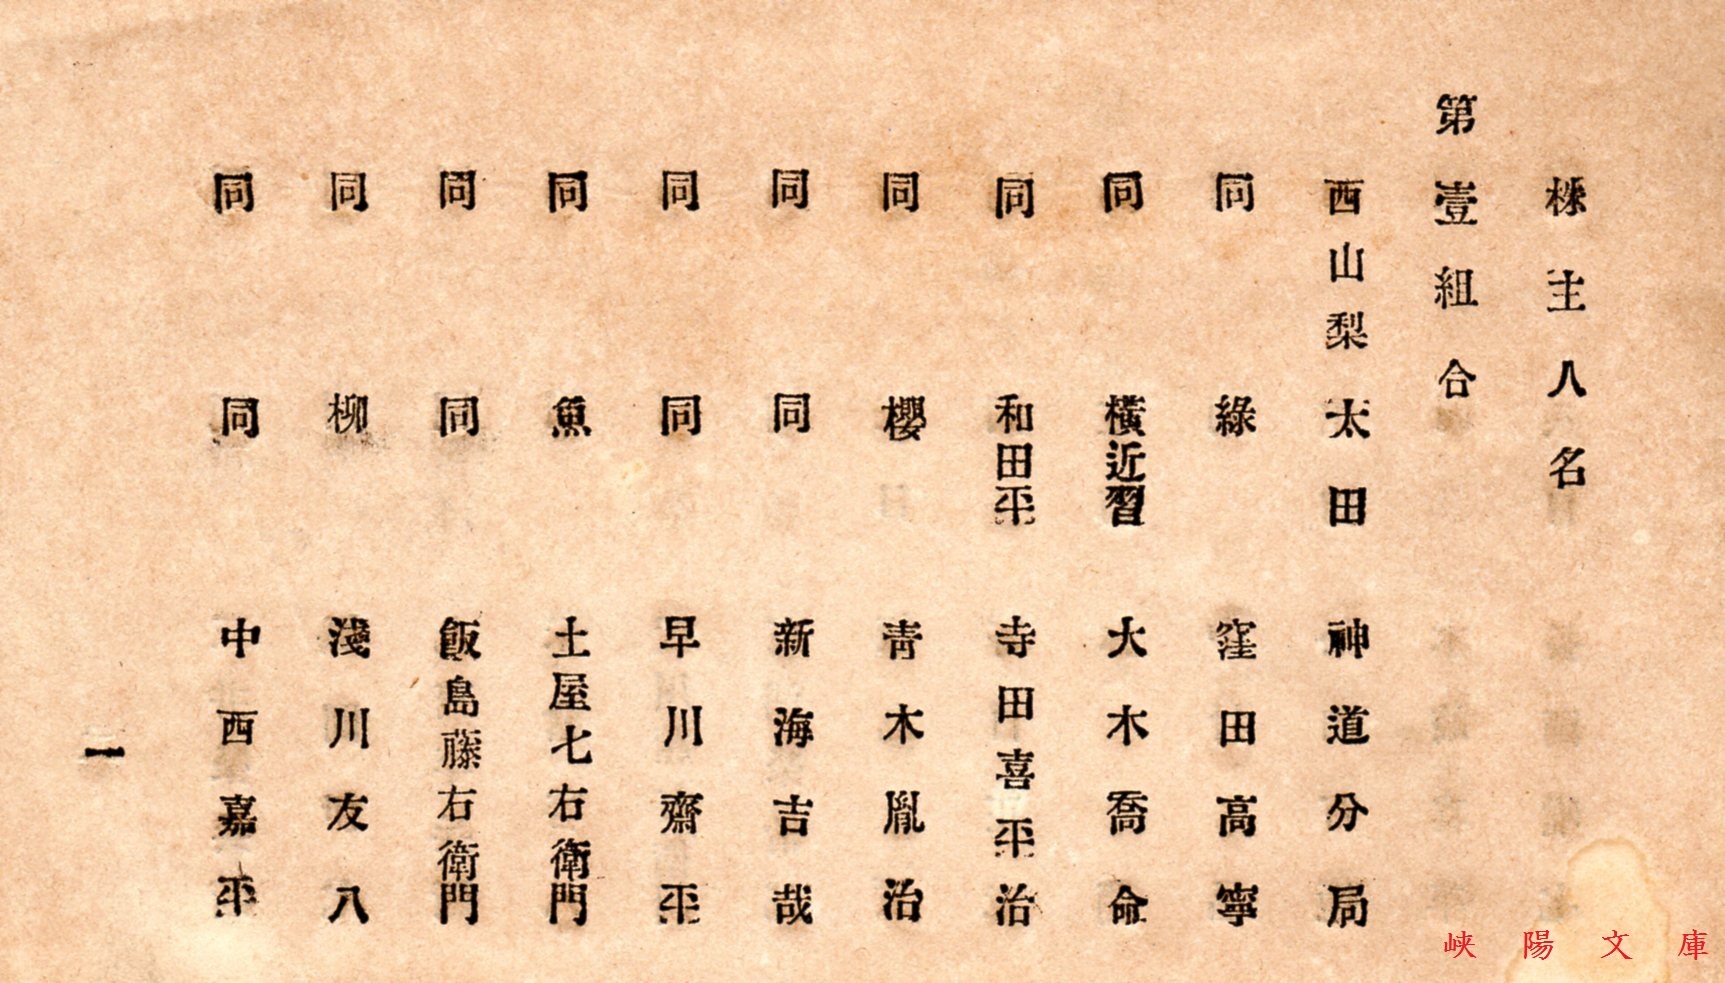 株主人名
第壹組合
西山梨 太田 神道分局
同 綠 窪田高寧
同 橫近習 大木喬命
同 和田平 寺田喜平治
同 櫻 靑木胤治
同 同 新海吉哉
同 同 早川齋平
同 魚 土屋七右衛門
同 同 飯島藤右衛門
同 柳 淺川友八
同 同 中西嘉平
一
峡陽文庫